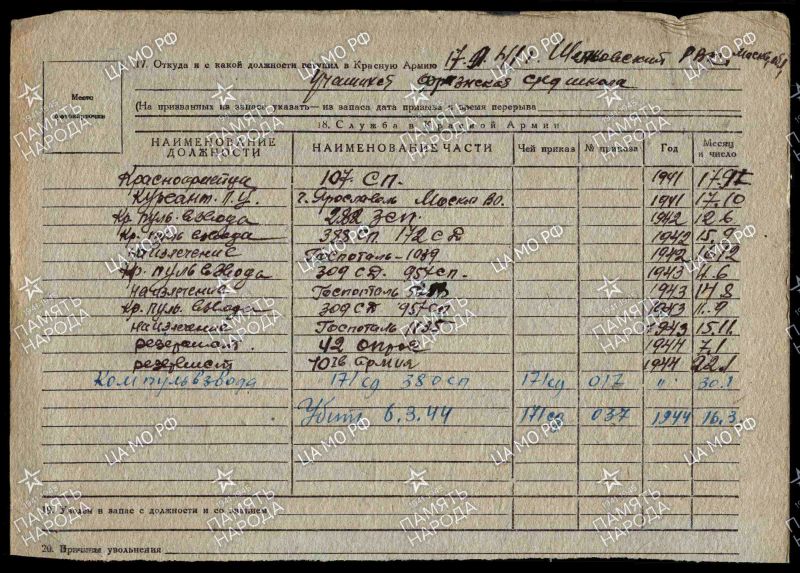 17. Откуда и с какой должности вступил в Красную Армию 17. 41г. Щелковский РВК Москов. обл
Учащийся средн школа
Место
фотокарточки
(На призванных из запаса указать — из запаса дата призыва и время перерыва)
18. Служба в Красной Армии
НАИМЕНОВАНИЕ ДОЛЖНОСТИ НАИМЕНОВАНИЕ ЧАСТИ Чей приказ № приказа Год Месяц и число
Красноармеец 107 СП. 1941
Курсант П.У. г. Ярославль Моск ВО. 1941 17.10
Ком. пуль. взвода 282 ЗСП. 1942 12.6
Ком. пуль взвода 388СП 172 СД 1942 15.9
на излечение Госпиталь 1942
Ком. пуль взвода 309 СД. 957 СП. 1943 4.6
на излечение Госпиталь 1943
Ком. пуль. взвода 309 СД 957 СП 1943 11.9
на излечение Госпиталь 1185 1943 15.11
резервист. 42 опрос 1944 7.1
резервист 10 гв Армия 1944 22.1
Ком пульвзвода 171 сд 380 сп 171 сд 017 " 30.1
Убит 6.3.44 171 сд 037 1944 16.3
19. Уволен в запас с должности и со званием
20. Причина увольнения
ПАМЯТЬ НАРОДА
ЦА МО РФ